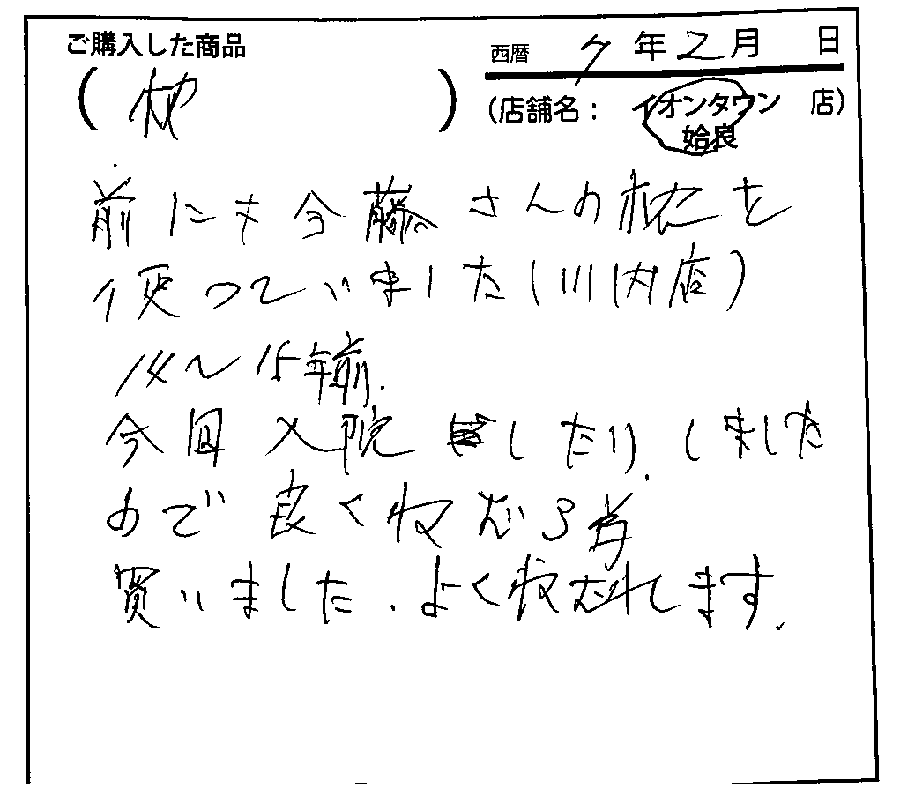 ご購入した商品
(枕)
西暦 7年2月 日
(店舗名: イオンタウン姶良 店)
前にも今藤さんの枕を
使っていました(川内店)
14〜15年前.
今回入院したり.しました
ので良くねむる為
買いました.よくねむれします.